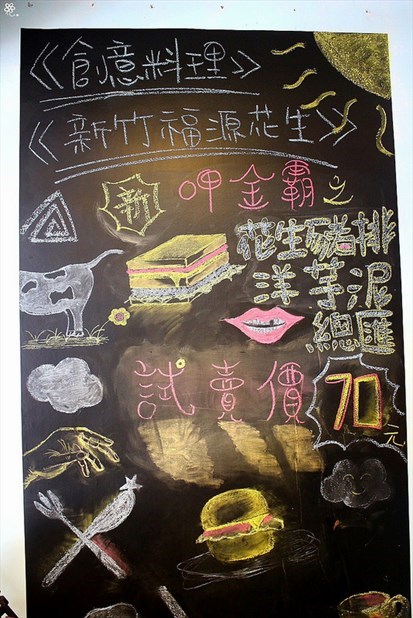 《創意料理》
《新竹福源花生》
新 呷金霸之
花生豬排
洋芋泥
總匯
試賣價 70元